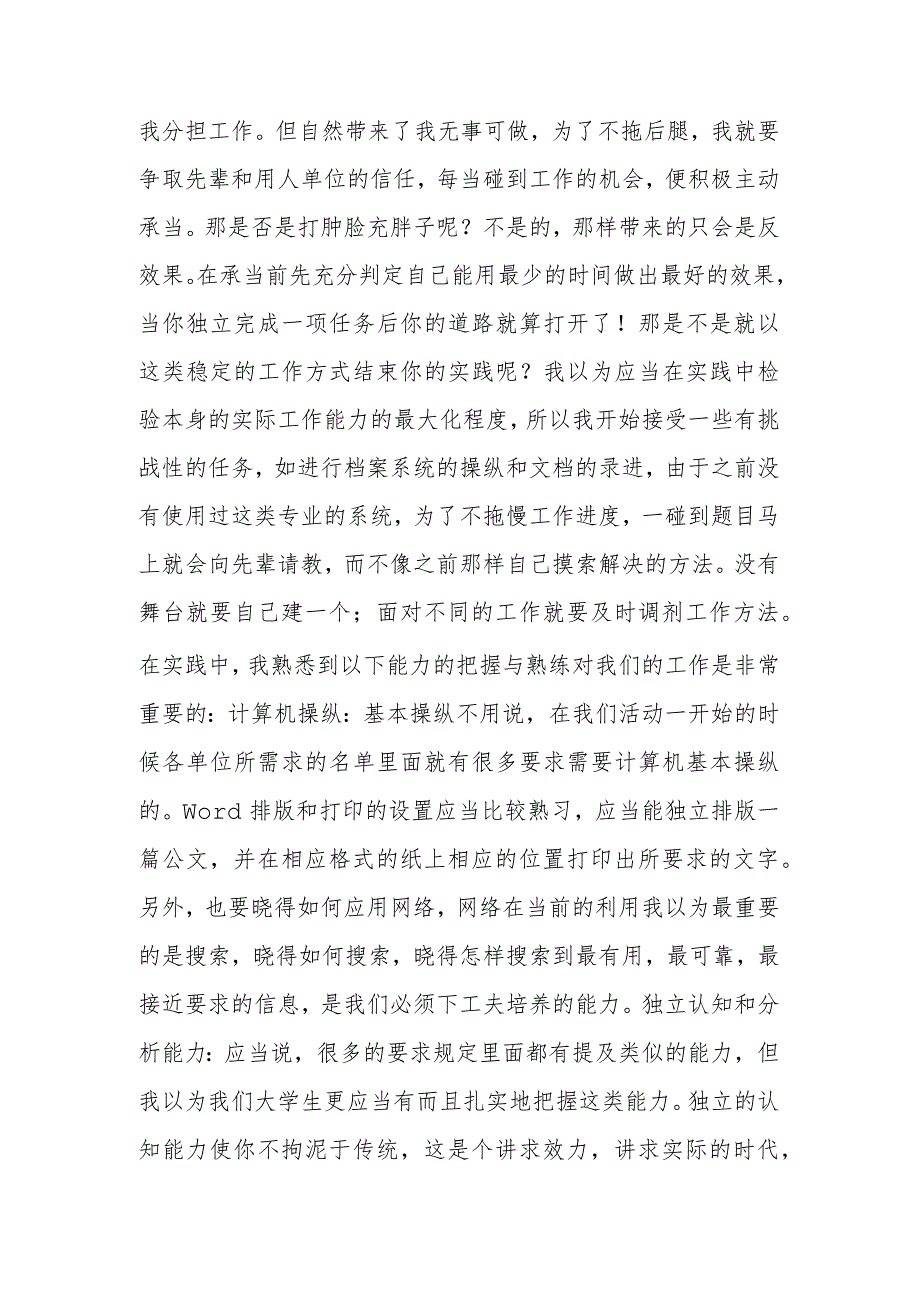 我分担工作。但自然带来了我无事可做，为了不拖后腿，我就要
争取先辈和用人单位的信任，每当碰到工作的机会，便积极主动
承当。那是否是打肿脸充胖子呢？不是的，那样带来的只会是反
效果。在承当前先充分判定自己能用最少的时间做出最好的效果，
当你独立完成一项任务后你的道路就算打开了！那是不是就以
这类稳定的工作方式结束你的实践呢？我以为应当在实践中检
验本身的实际工作能力的最大化程度，所以我开始接受一些有挑
战性的任务，如进行档案系统的操纵和文档的录进，由于之前没
有使用过这类专业的系统，为了不拖慢工作进度，一碰到题目马
上就会向先辈请教，而不像之前那样自己摸索解决的方法。没有
舞台就要自己建一个；面对不同的工作就要及时调剂工作方法。
在实践中，我熟悉到以下能力的把握与熟练对我们的工作是非常
重要的：计算机操纵：基本操纵不用说，在我们活动一开始的时
候各单位所需求的名单里面就有很多要求需要计算机基本操纵
的。Word 排版和打印的设置应当比较熟习，应当能独立排版一
篇公文，并在相应格式的纸上相应的位置打印出所要求的文字。
另外，也要晓得如何应用网络，网络在当前的利用我以为最重要
的是搜索，晓得如何搜索，晓得怎样搜索到最有用，最可靠，最
接近要求的信息，是我们必须下工夫培养的能力。独立认知和分
析能力：应当说，很多的要求规定里面都有提及类似的能力，但
我以为我们大学生更应当有而且扎实地把握这类能力。独立的认
知能力使你不拘泥于传统，这是个讲求效力，讲求实际的时代，